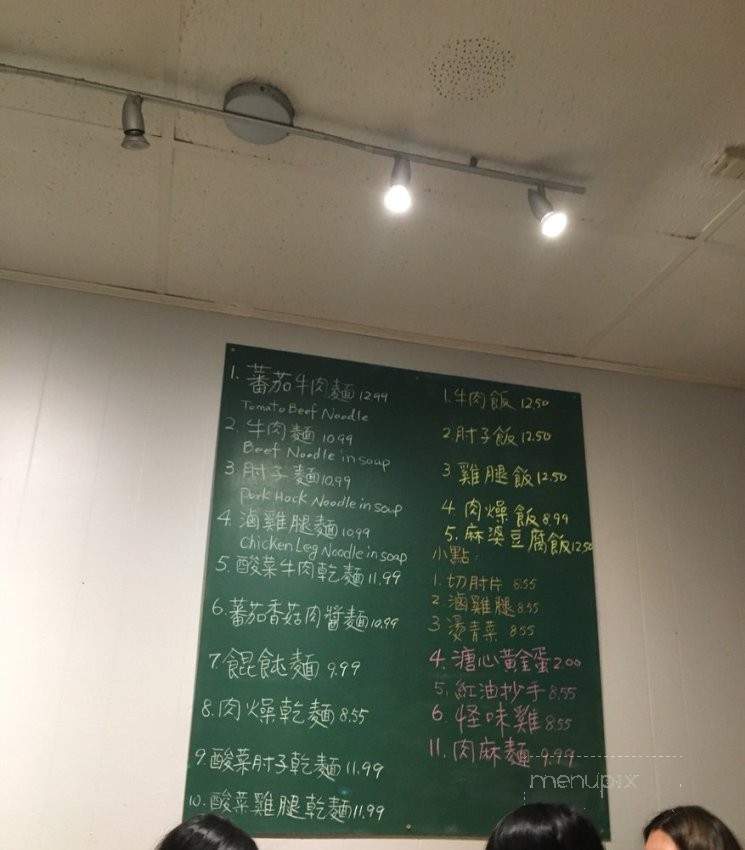 1. 蕃茄牛肉麵 12.99
Tomato Beef Noodle
2. 牛肉麵 10.99
Beef Noodle in soup
3 肘子麵 10.99
Pork Hock Noodle in soup
4. 滷雞腿麵 10.99
Chicken Leg Noodle in soap
5. 酸菜牛肉乾麵 11.99
6. 蕃茄香菇肉醬麵 10.99
7 餛飩麵 9.99
8. 肉燥乾麵 8.55
9. 酸菜肘子乾麵 11.99
10. 酸菜雞腿乾麵 11.99
1. 牛肉飯 12.50
2. 肘子飯 12.50
3 雞腿飯 12.50
4. 肉燥飯 8.99
5. 麻婆豆腐飯 12.50
小點:
1. 切肘片 8.55
2. 滷雞腿 8.55
3 燙青菜 8.55
4. 溏心黃金蛋 2.00
5. 紅油抄手 8.55
6 怪味雞 8.55
11. 肉麻麵 9.99
menupix